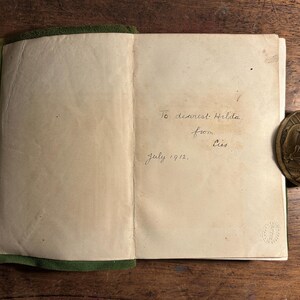 To dearest Hilda
from
July 1912.